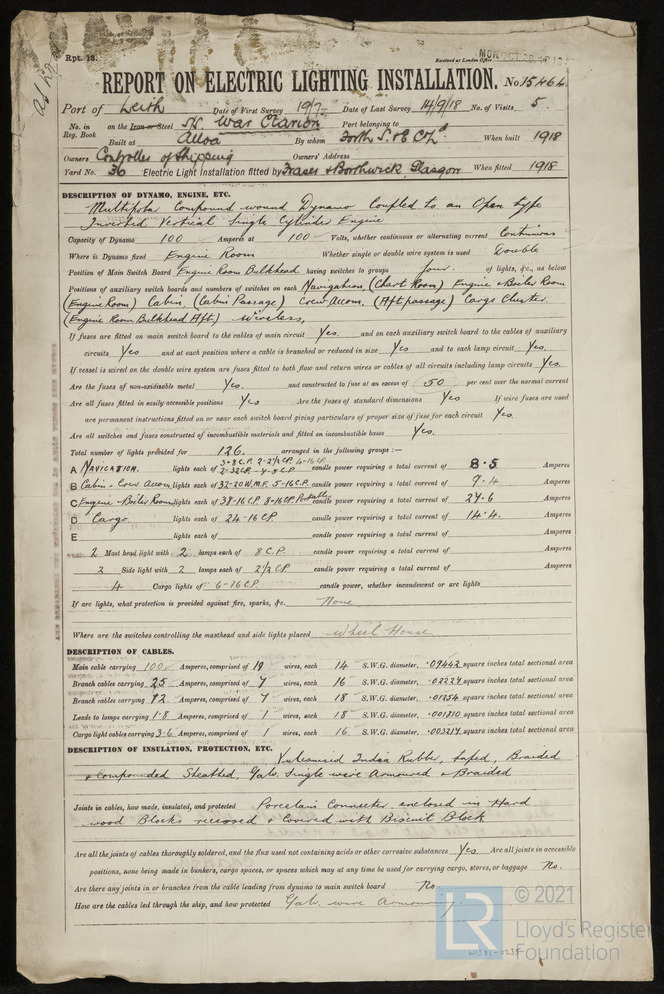 Rpt. 13.
Received at London Office
REPORT ON ELECTRIC LIGHTING INSTALLATION. No 15464
Port of Leith Date of First Survey 19/7 Date of Last Survey 14/9/18 No. of Visits 5.
No. in Reg. Book on the Iron or Steel SS War Clarion Port belonging to
Built at Alloa By whom Forth S. & E Co Ld When built 1918
Owners Controller of Shipping Owners' Address
Yard No. 36 Electric Light Installation fitted by Fraser & Borthwick, Glasgow When fitted 1918
DESCRIPTION OF DYNAMO, ENGINE, ETC.
Multipolar Compound wound Dynamo Coupled to an Open type
Inverted Vertical Single Cylinder Engine
Capacity of Dynamo 100 Amperes at 100 Volts, whether continuous or alternating current Continuous
Where is Dynamo fixed Engine Room Whether single or double wire system is used Double
Position of Main Switch Board Engine Room Bulkhead having switches to groups four. of lights, &c., as below
Positions of auxiliary switch boards and numbers of switches on each Navigation (Chart Room) Engine & Boiler Room
(Engine Room) Cabin (Cabin Passage) Crew Accom. (Aft passage) Cargo Cluster.
(Engine Room Bulkhead Aft) Wireless,
If fuses are fitted on main switch board to the cables of main circuit Yes and on each auxiliary switch board to the cables of auxiliary
circuits Yes and at each position where a cable is branched or reduced in size Yes and to each lamp circuit Yes
If vessel is wired on the double wire system are fuses fitted to both flow and return wires or cables of all circuits including lamp circuits Yes.
Are the fuses of non-oxidizable metal Yes. and constructed to fuse at an excess of 50 per cent over the normal current
Are all fuses fitted in easily accessible positions Yes Are the fuses of standard dimensions Yes If wire fuses are used
are permanent instructions fitted on or near each switch board giving particulars of proper size of fuse for each circuit Yes.
Are all switches and fuses constructed of incombustible materials and fitted on incombustible bases Yes.
Total number of lights provided for 126. arranged in the following groups :—
A Navigation. lights each of 3-8 C.P. 2-2½ CP. 4-16 CP. 2-32 CP. - 4-8 C.P candle power requiring a total current of 8.5 Amperes
B Cabin & Crew Accom lights each of 32-20 W.M.F. 5-16 C.P. candle power requiring a total current of 9.4 Amperes
C Engine & Boiler Room, lights each of 38-16 C.P. 8-16 C.P. Portable candle power requiring a total current of 27.6 Amperes
D Cargo lights each of 24-16 CP candle power requiring a total current of 14.4. Amperes
E lights each of candle power requiring a total current of Amperes
2 Mast head light with 2 lamps each of 8 C.P. candle power requiring a total current of Amperes
2 Side light with 2 lamps each of 2½ CP candle power requiring a total current of Amperes
4 Cargo lights of 6-16 CP candle power, whether incandescent or arc lights
If arc lights, what protection is provided against fire, sparks, &c. None
Where are the switches controlling the masthead and side lights placed Wheel House
DESCRIPTION OF CABLES.
Main cable carrying 100 Amperes, comprised of 19 wires, each 14 S.W.G. diameter, .09442 square inches total sectional area
Branch cables carrying 25 Amperes, comprised of 7 wires, each 16 S.W.G. diameter, .02227 square inches total sectional area
Branch cables carrying 12 Amperes, comprised of 7 wires, each 18 S.W.G. diameter, .01254 square inches total sectional area
Leads to lamps carrying 1.8 Amperes, comprised of 1 wires, each 18 S.W.G. diameter, .001810 square inches total sectional area
Cargo light cables carrying 3.6 Amperes, comprised of 1 wires, each 16 S.W.G. diameter, .003217 square inches total sectional area
DESCRIPTION OF INSULATION, PROTECTION, ETC.
Vulcanised India Rubber, taped, Braided
& compounded Sheathed, Galv. Single wire Armoured & Braided
Joints in cables, how made, insulated, and protected Porcelain Connector enclosed in Hard
wood Blocks recessed & Covered with Biscuit Block
Are all the joints of cables thoroughly soldered, and the flux used not containing acids or other corrosive substances Yes Are all joints in accessible
positions, none being made in bunkers, cargo spaces, or spaces which may at any time be used for carrying cargo, stores, or baggage No.
Are there any joints in or branches from the cable leading from dynamo to main switch board No
How are the cables led through the ship, and how protected Galv. wire Armouring.
© 2021
LR
Lloyd's Register
Foundation
W1381-0235